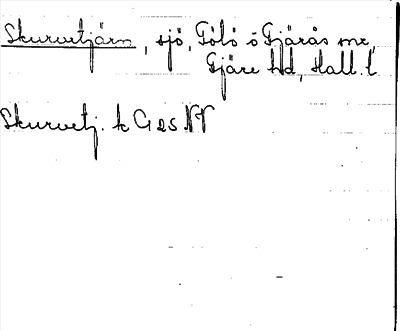 Skurvetjärn, sjö, Tölö o Fjärås snr,
Fjäre hd, Hall. l.
Skurvetj. k G 25 NV